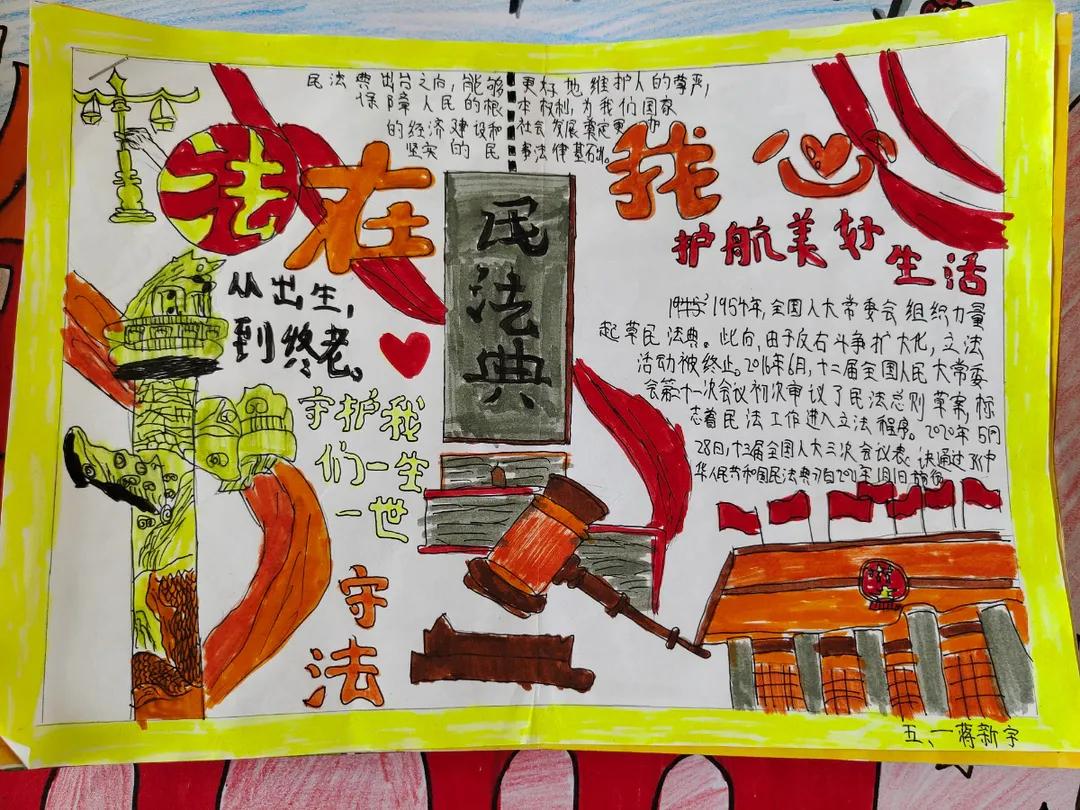 民法典出台之后,能够更好地维护人的尊严,
保障人民的根本权利,为我们国家
的经济建设和社会发展奠定更加
坚实的民事法律基石。
法在我心
民法典
护航美好
生活
从出生,
到终老。
守护我
们一生
一世
守
法
1954年,全国人大常委会组织力量
起草民法典。此后,由于反右斗争扩大化,立法
活动被终止。2016年6月,十二届全国人民大常委
会第二十一次会议初次审议了民法总则草案,标
志着民法工作进入立法程序。2020年5月
28日,十三届全国人大三次会议表决通过了《中
华人民共和国民法典》自2021年1月1日施行
五、一蒋新宇